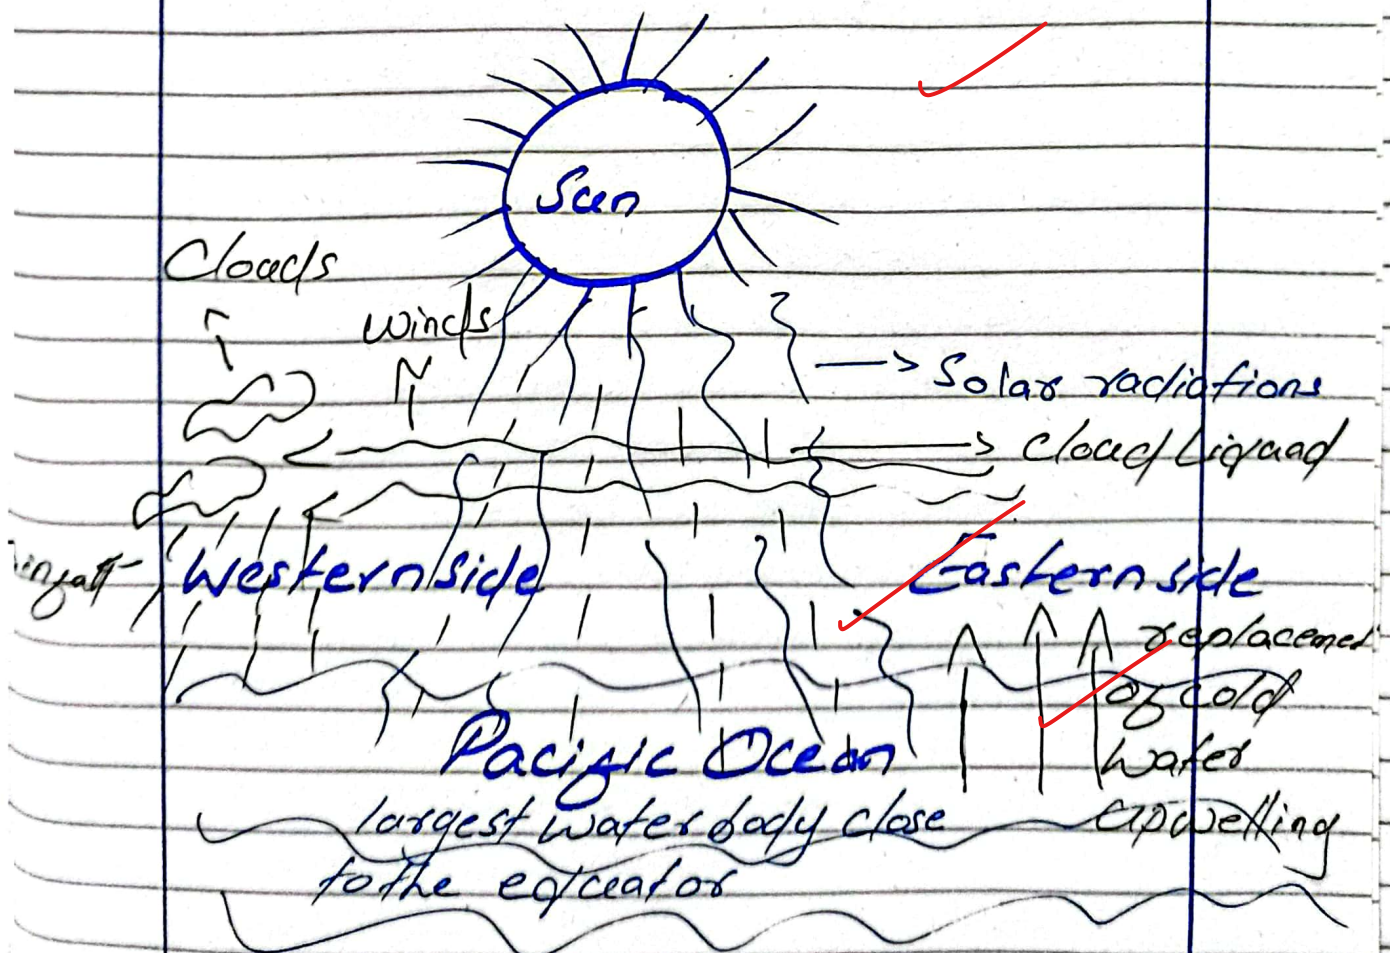 Sun
Clouds
Winds
Solar radiations
Cloud Liquad
Western side
Eastern side
replacement
of cold
water
upwelling
Pacific Ocean
largest water body close
to the equator